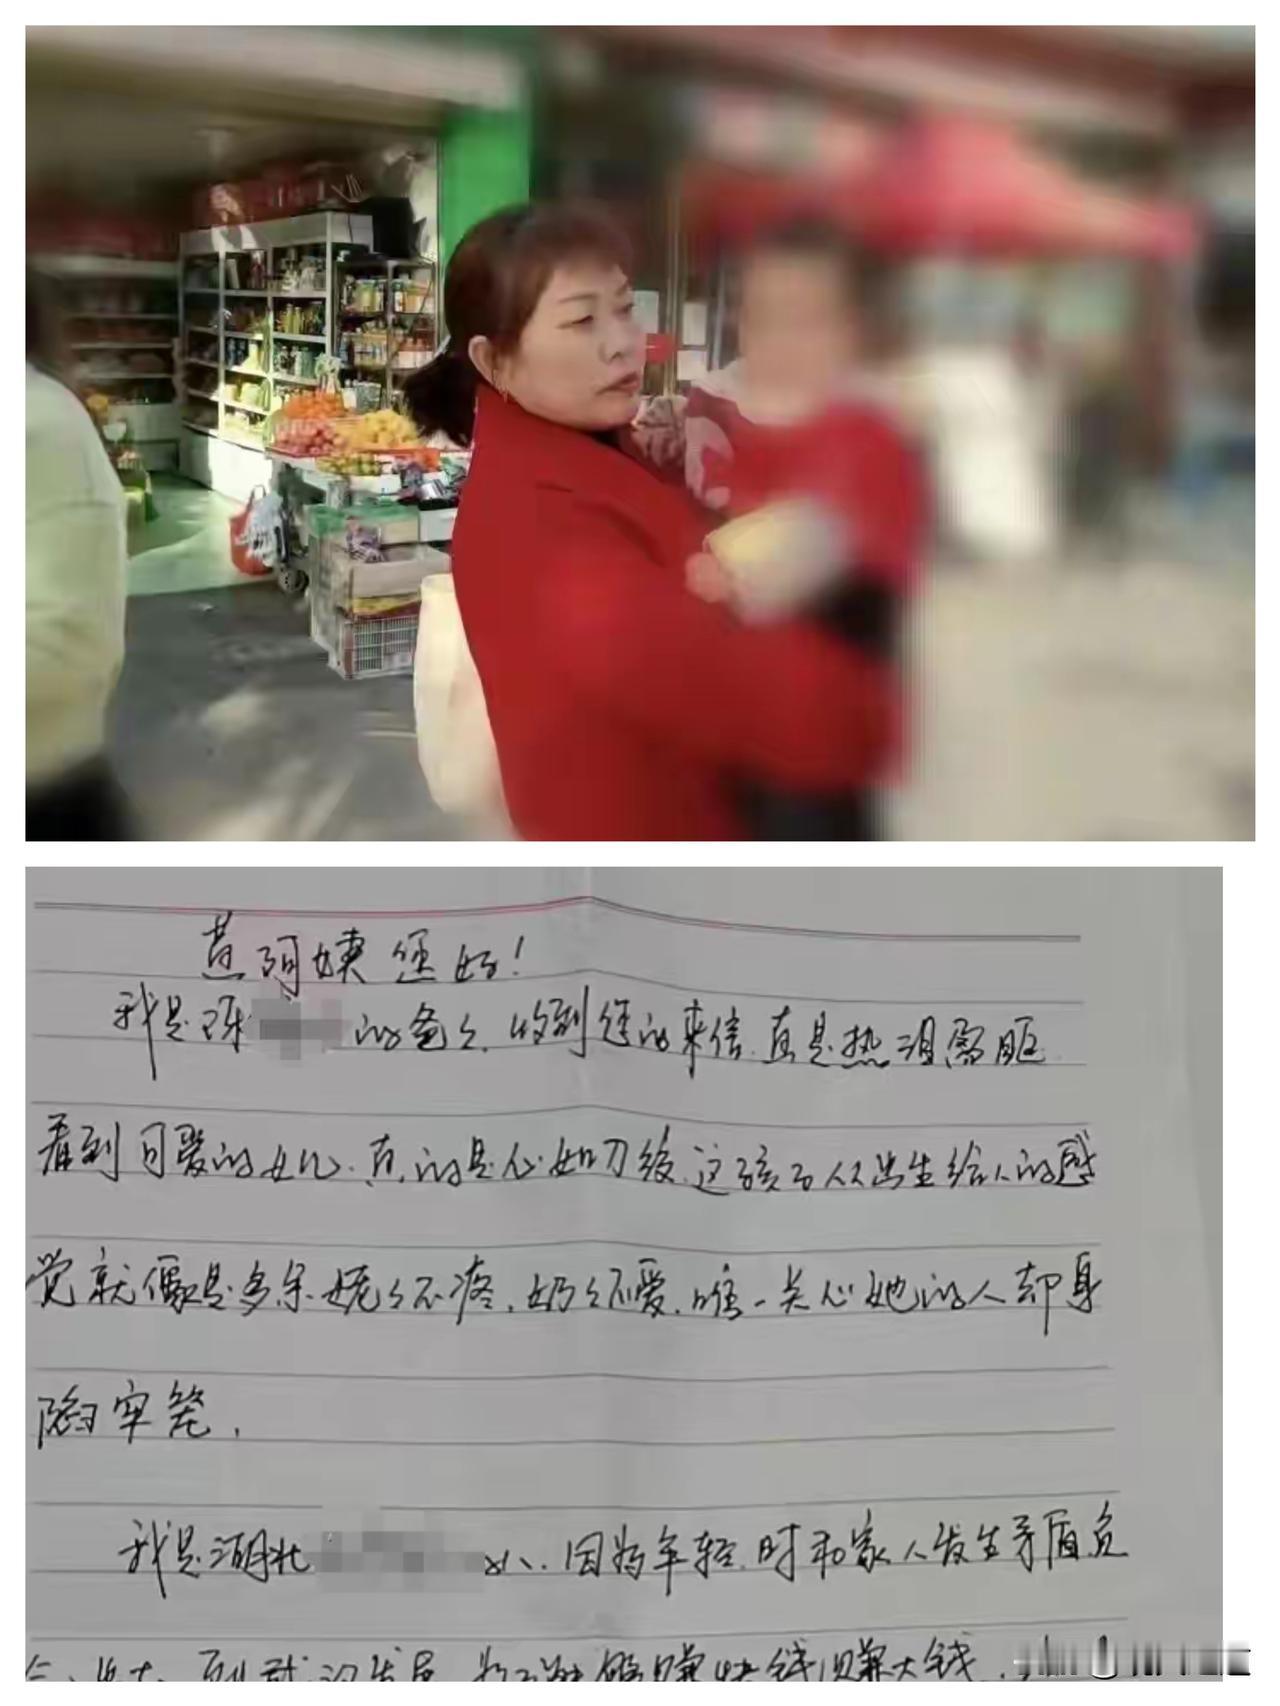 黄阿姨您好！
我是陈 的爸爸，收到您的来信，真是热泪盈眶
看到可爱的女儿，真的是心如刀绞，这孩子从出生给人的感
觉就像是多余，妈妈不疼，奶奶不爱，唯一关心她的人却身
陷牢笼，
我是湖北 人，因为年轻时和家人发生矛盾负
到武汉发展 能够赚快钱，赚大钱，